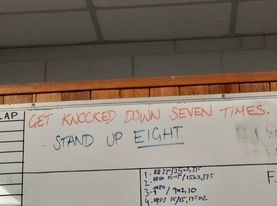 LAP
GET KNOCKED DOWN SEVEN TIMES.
- STAND UP EIGHT
F
1-
2-
3-9 / 9x2,10
4-